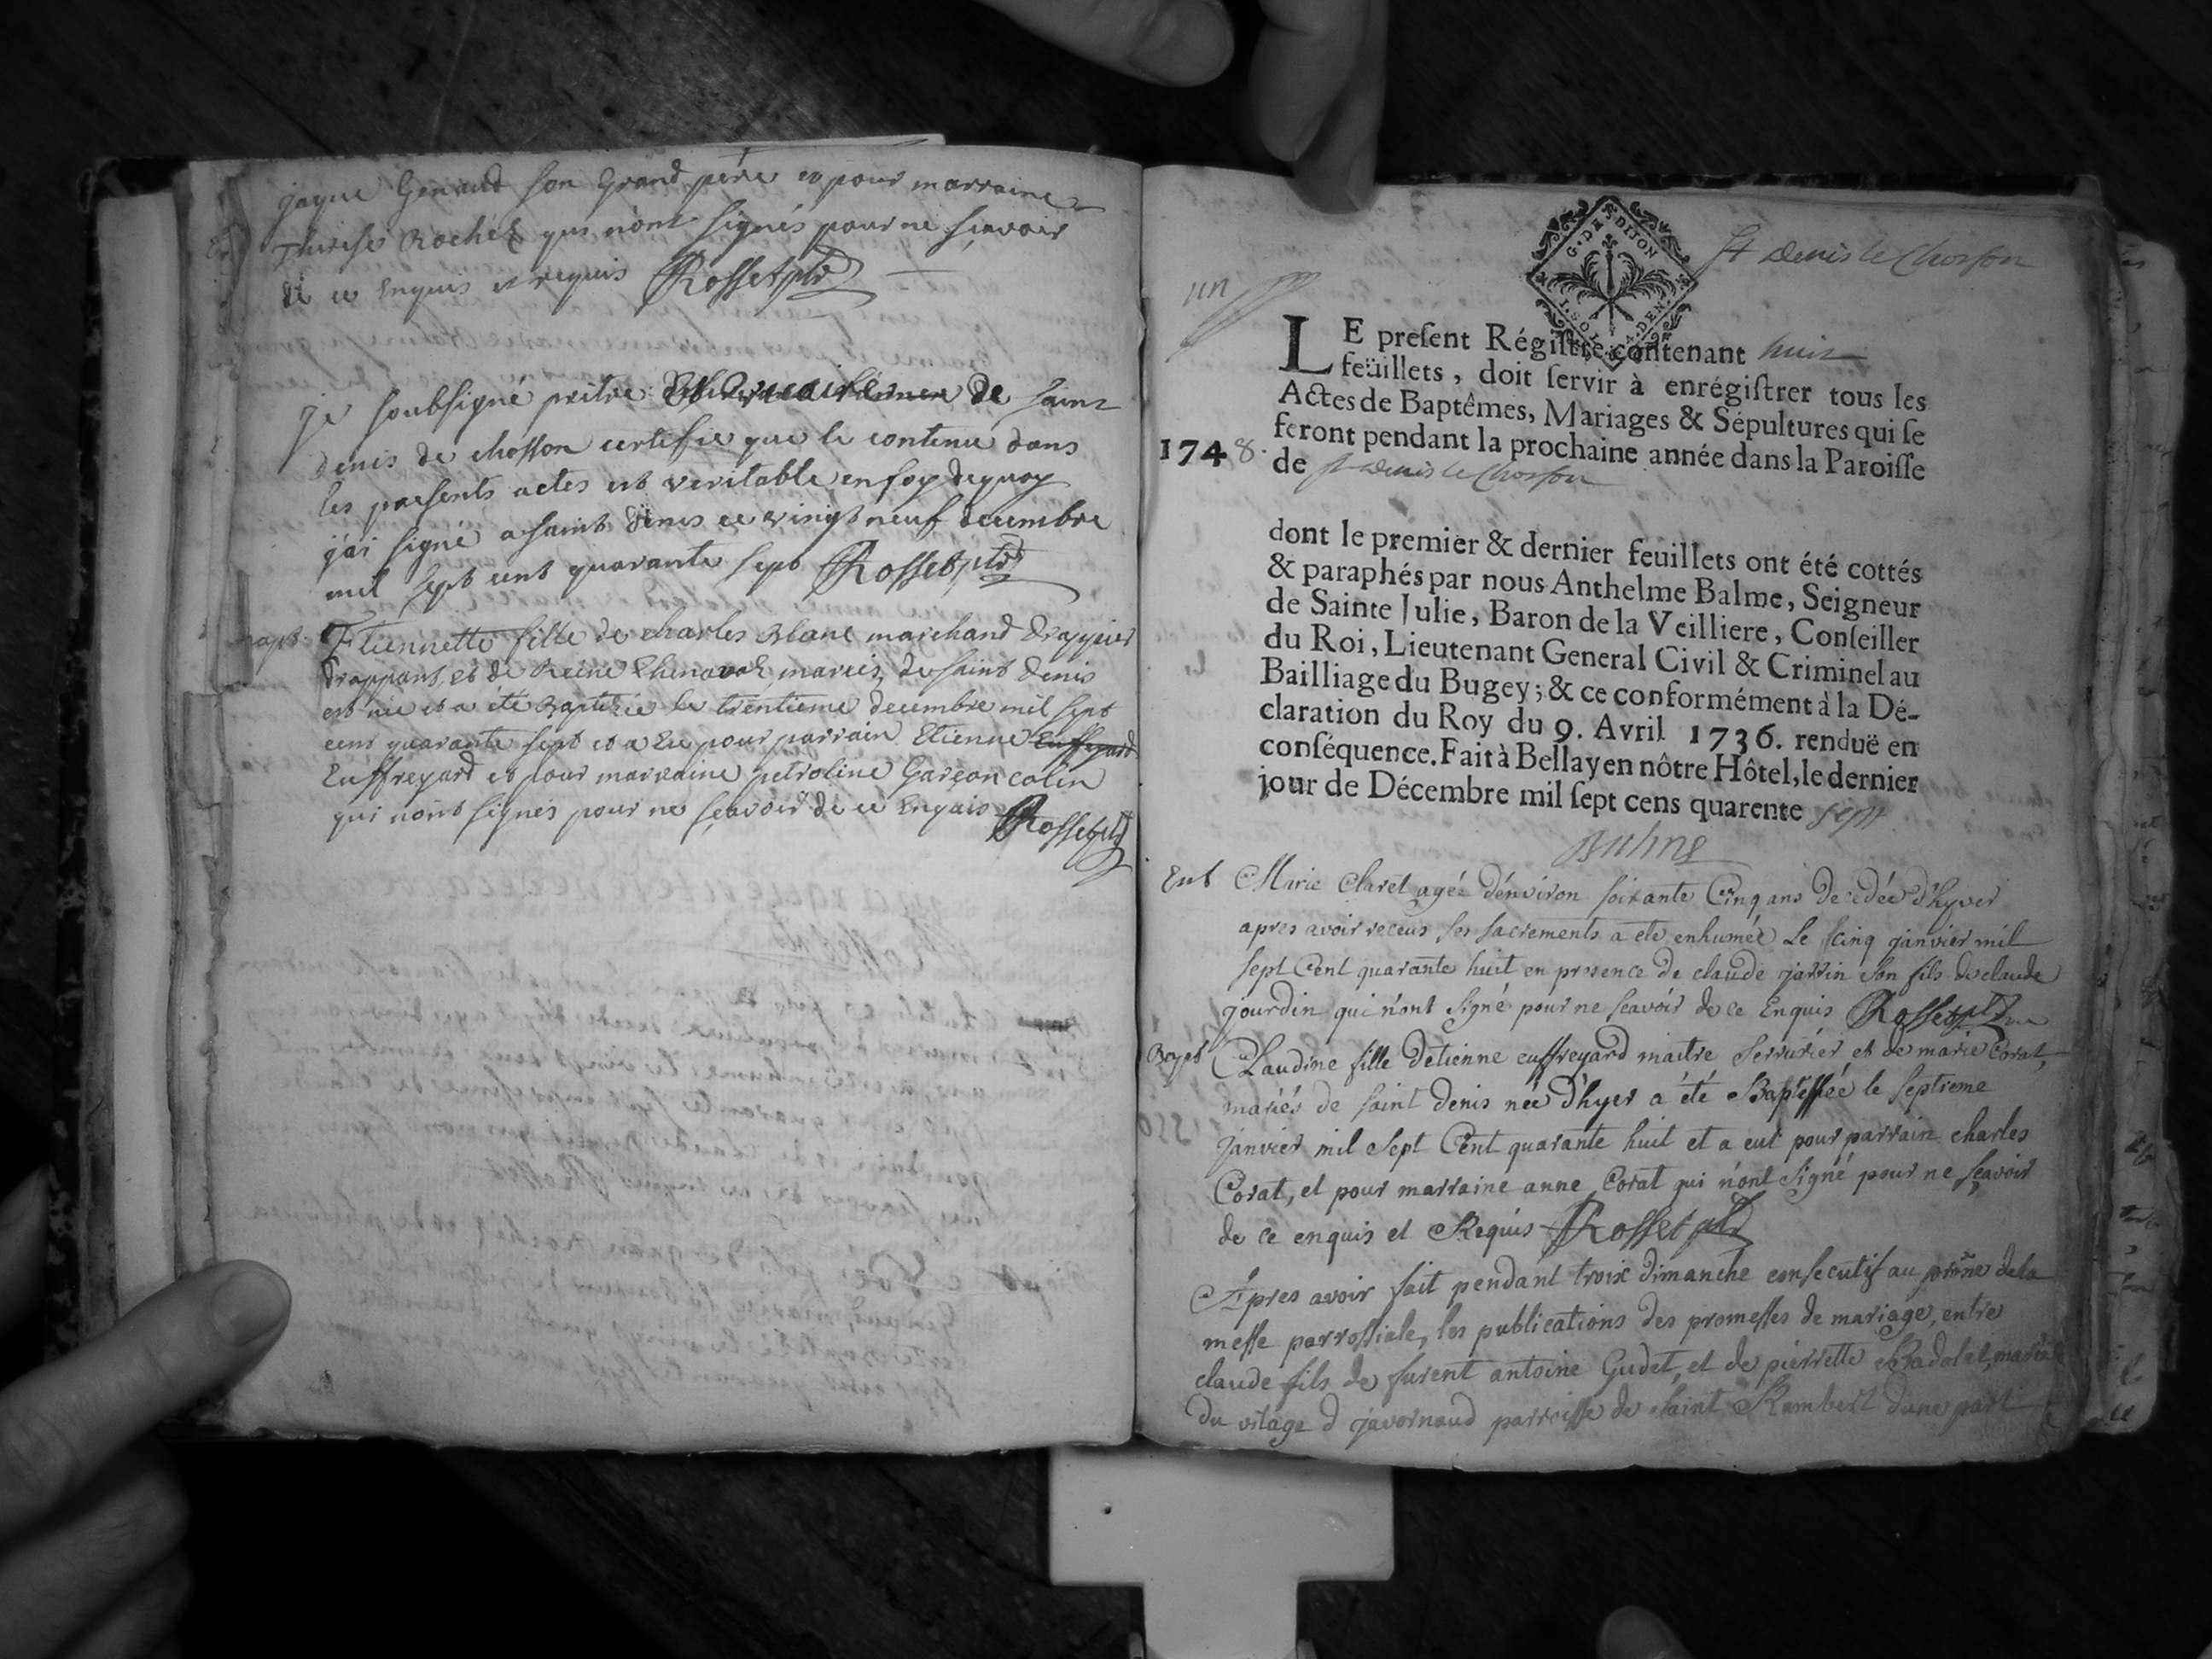 jaque Genaud son Grand pére et pour marraine
Therese Rochet qui n'ont signés pour ne sçavoir
de ce Enquis et requis Rosset ptr
Je soubsigné pretre de saint
denis de chosson certifie que le contenu dans
les presents actes est veritable en foy de quoy
j'ai signé a saint denis ce vingt neuf decembre
mil sept cent quarante sept Rosset ptr
bapt. Etiennette fille de charles Blanc marchand drappier
drappant et de Reine Chenavat mariés de saint denis
est née et a été Baptizée le trentieme decembre mil sept
cent quarante sept et a Eu pour parrain Etienne Euffreyard
Euffreyard et pour marraine petroline Garçon colin
qui n'ont signés pour ne sçavoir de ce Enquis Rosset ptr
G. DE DIJON
St denis le Chosson
un
LE present Régistre contenant huit
feüillets, doit servir à enrégistrer tous les
Actes de Baptêmes, Mariages & Sépultures qui se
feront pendant la prochaine année dans la Paroisse
1748.
de St denis le Chosson
dont le premier & dernier feuillets ont été cottés
& paraphés par nous Anthelme Balme, Seigneur
de Sainte Julie, Baron de la Veilliere, Conseiller
du Roi, Lieutenant General Civil & Criminel au
Bailliage du Bugey; & ce conformément à la Dé-
claration du Roy du 9. Avril 1736. renduë en
conséquence. Fait à Bellay en nôtre Hôtel, le dernier
jour de Décembre mil sept cens quarente sept
Balme
Ent Marie Claret agée d'environ soixante Cinq ans decedée d'hyver
apres avoir receus ses sacrements a ete enhumée Le Cinq janvier mil
sept Cent quarante huit en presence de claude jarrin son fils de claude
jourdin qui n'ont signé pour ne scavoir de ce Enquis Rosset ptr
Bapt Claudine fille detienne euffreyard maitre serrurier et de marie Corat,
mariés de saint denis née d'hyer a été Baptissée le septieme
janvier mil sept Cent quarante huit et a eut pour parrain charles
Corat, et pour marraine anne Corat qui n'ont signé pour ne sçavoir
de ce enquis et Requis Rosset ptr
Apres avoir fait pendant troix dimanche consecutif au prône dela
messe parrossiale, les publications des promesses de mariage, entre
claude fils de furent antoine Gudet, et de pierrette Badolat, mariés
du vilage d javornaud parroisse de saint Rambert dune part